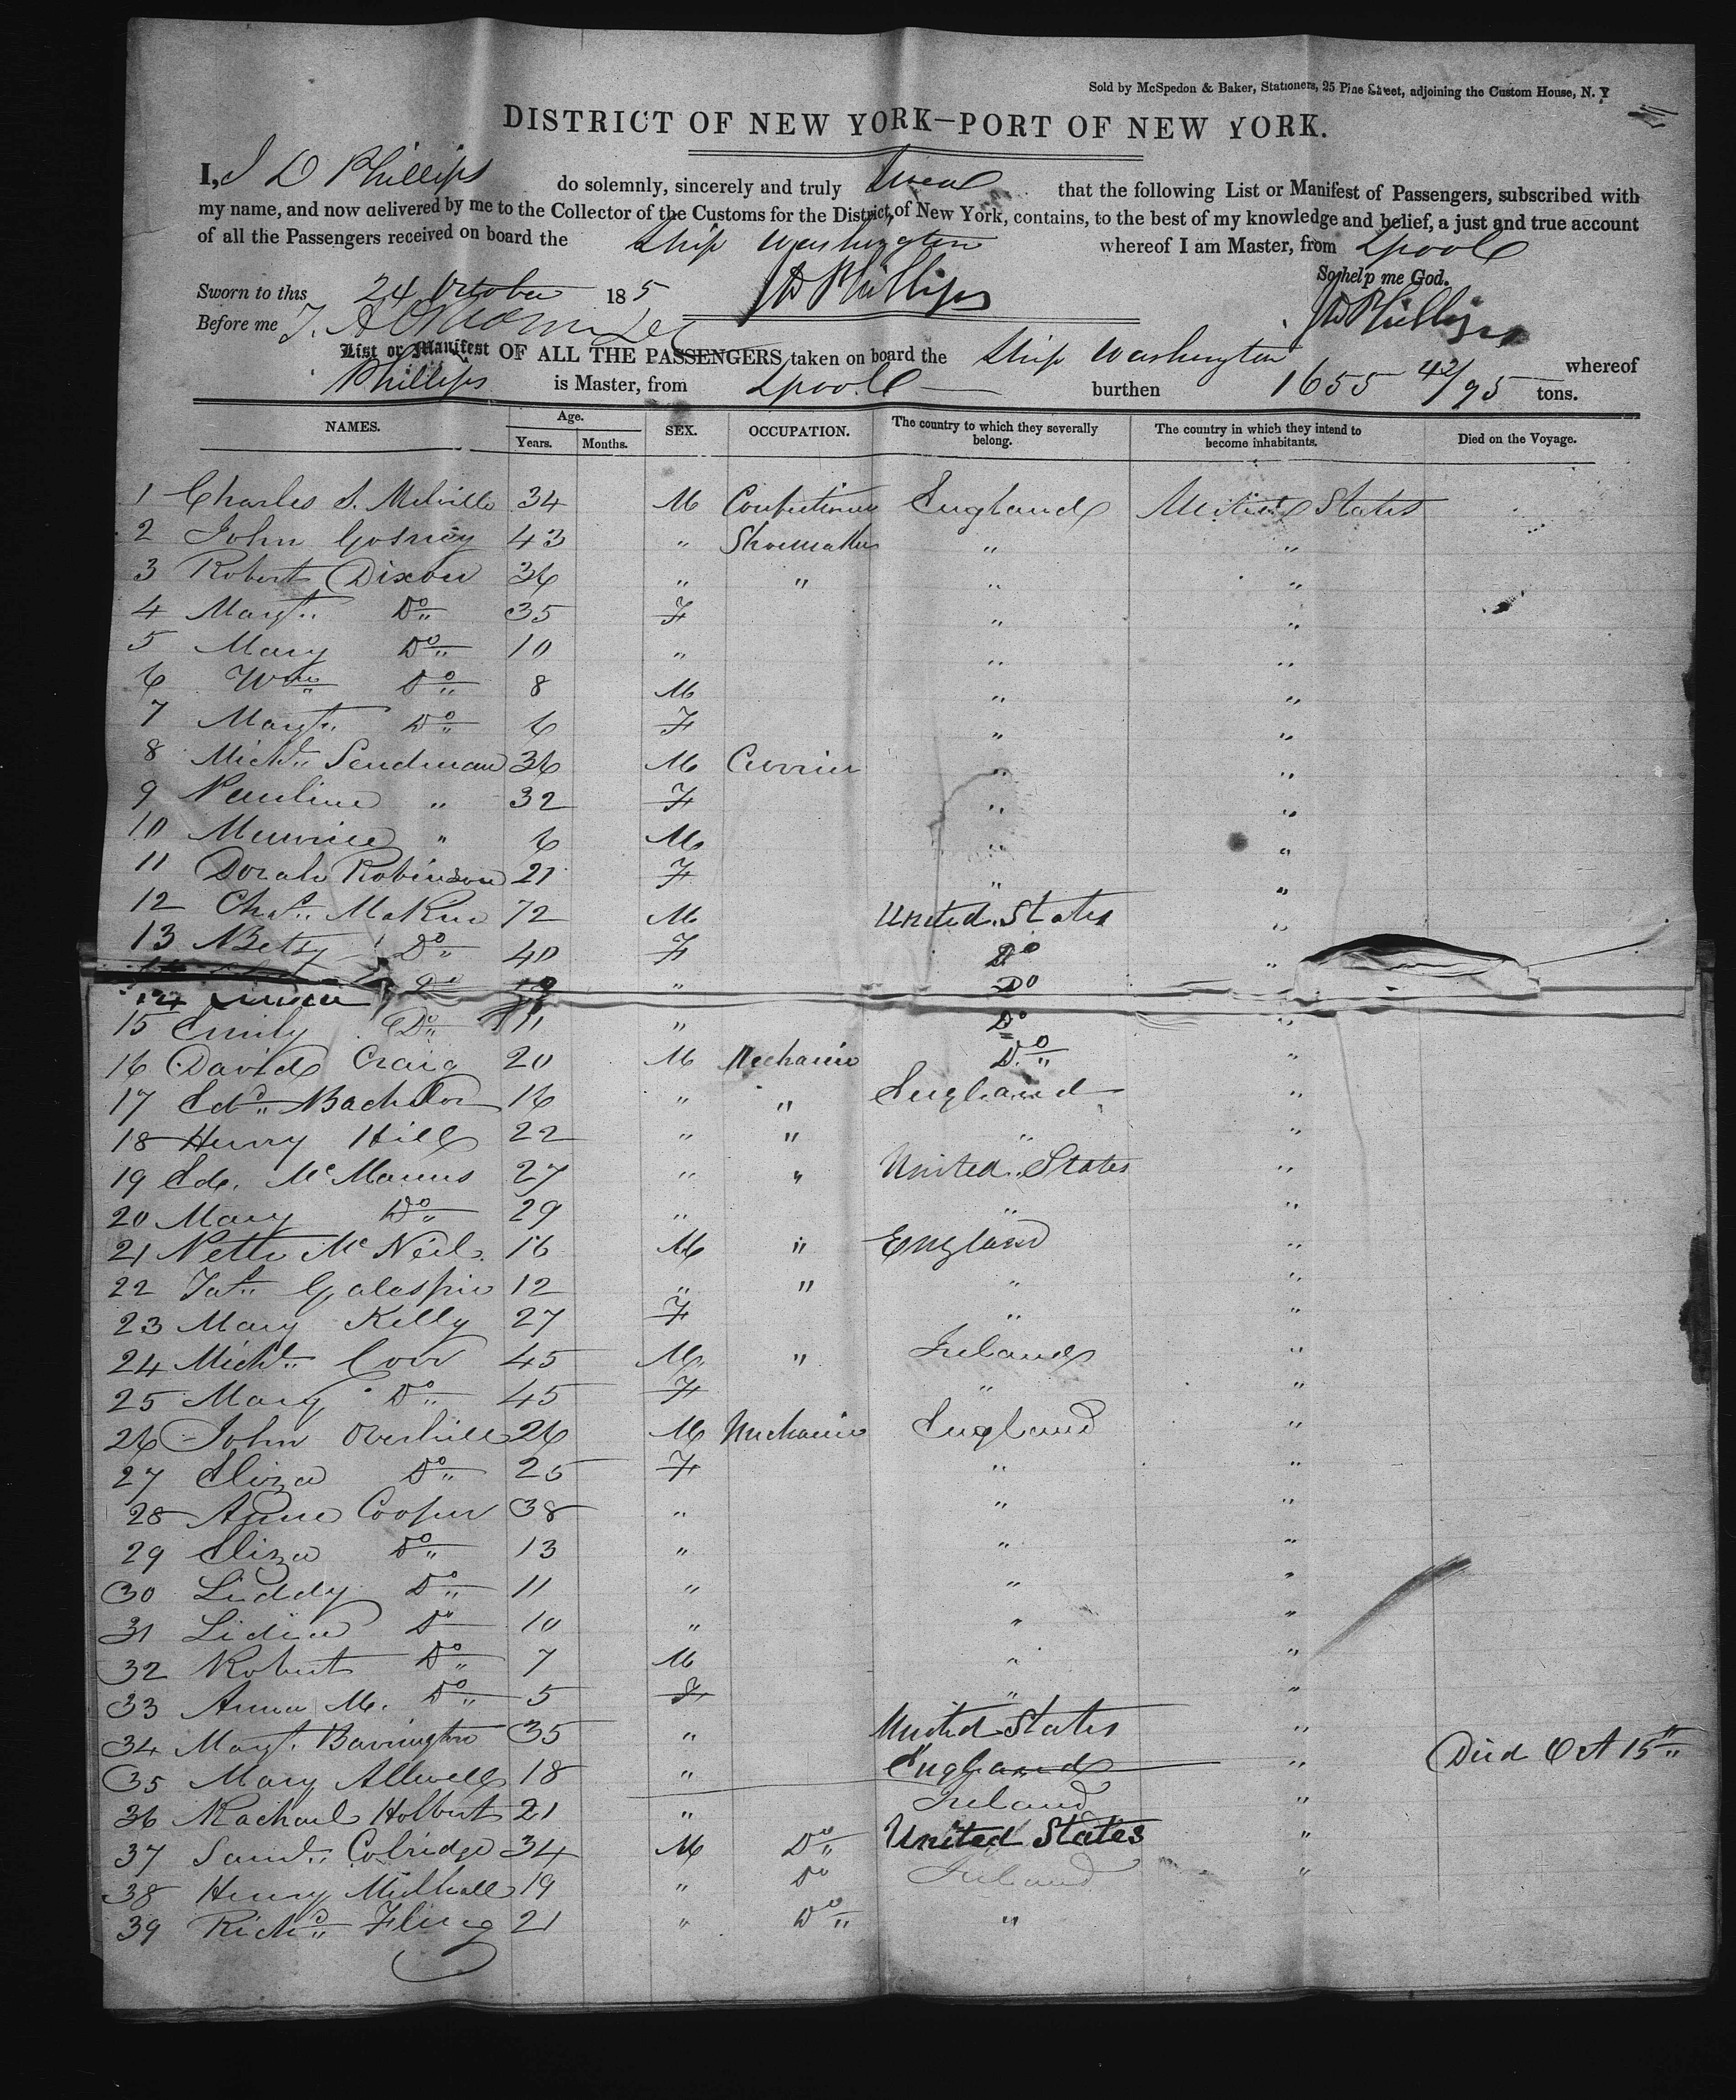 Sold by McSpedon & Baker, Stationers, 25 Pine Street, adjoining the Custom House, N. Y
DISTRICT OF NEW YORK—PORT OF NEW YORK.
I, J D Phillips do solemnly, sincerely and truly Swear that the following List or Manifest of Passengers, subscribed with
my name, and now delivered by me to the Collector of the Customs for the District, of New York, contains, to the best of my knowledge and belief, a just and true account
of all the Passengers received on board the Ship Washington whereof I am Master, from Lpool
So help me God.
Sworn to this 24 October 185 JD Phillips JD Phillips
Before me
List or Manifest OF ALL THE PASSENGERS taken on board the Ship Washington whereof
Phillips is Master, from Lpool burthen 1655 42/95 tons.
NAMES. Age. Years. Months. SEX. OCCUPATION. The country to which they severally belong. The country in which they intend to become inhabitants. Died on the Voyage.
1 Charles S. Melville 34 M Confectioner England United States
2 John Gosney 43 " Shoemaker " "
3 Robert Dixon 36 " " " "
4 Margt. Do 35 F " "
5 Mary Do 10 " " "
6 Wm Do 8 M " "
7 Margt. Do 6 F " "
8 Michl. Sendman 36 M Currier " "
9 Pauline " 32 F " "
10 Maurice " 6 M " "
11 Dorah Robinson 21 F " "
12 Chas. McKue 72 M United States "
13 Betsy Do 40 F Do "
14 Do " Do
15 Emily Do 11 " Do "
16 David Craig 20 M Mechanic Do "
17 Edd. Bachelor 16 " " England "
18 Henry Hill 22 " " " "
19 Ed. McManus 27 " " United States "
20 Mary Do 29 " " "
21 Nette McNeil 16 M " England "
22 Jas. Galaspie 12 " " " "
23 Mary Kelly 27 F " "
24 Michl. Corr 45 M " Ireland "
25 Mary Do 45 F " "
26 John Overhill 26 M Mechanic England "
27 Eliza Do 25 F " "
28 Anne Cooper 38 " " "
29 Eliza Do 13 " " "
30 Liddy Do 11 " " "
31 Lidia Do 10 " " "
32 Robert Do 7 M " "
33 Anna M. Do 5 F " "
34 Margt. Barrington 35 " United States "
35 Mary Allwell 18 " England " Died Oct 15th
36 Rachael Holbert 21 " Ireland "
37 Saml. Colridge 34 M Do United States "
38 Henry Mulhall 19 " Do Ireland "
39 Richd. Fling 21 " Do "